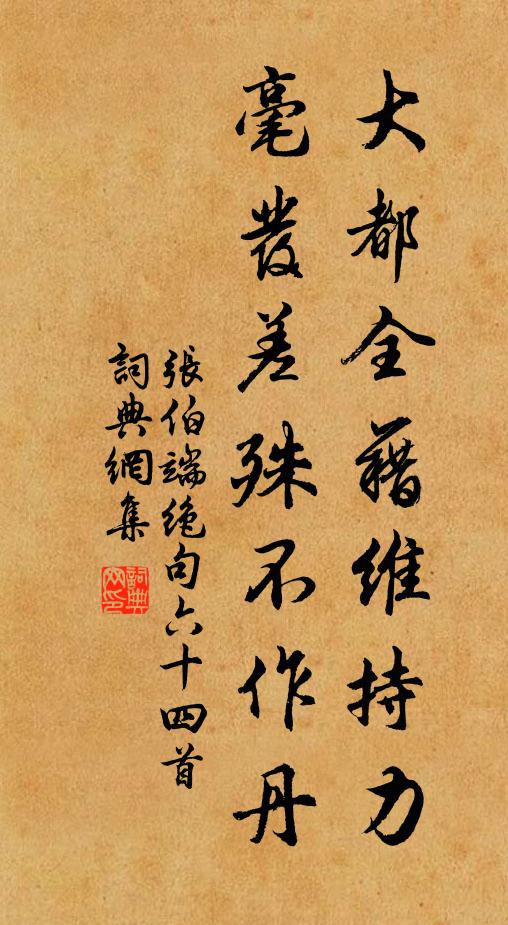 大都全藉維持力
毫發差殊不作丹
張伯端絶句六十四首
詞典網集
詞典网印